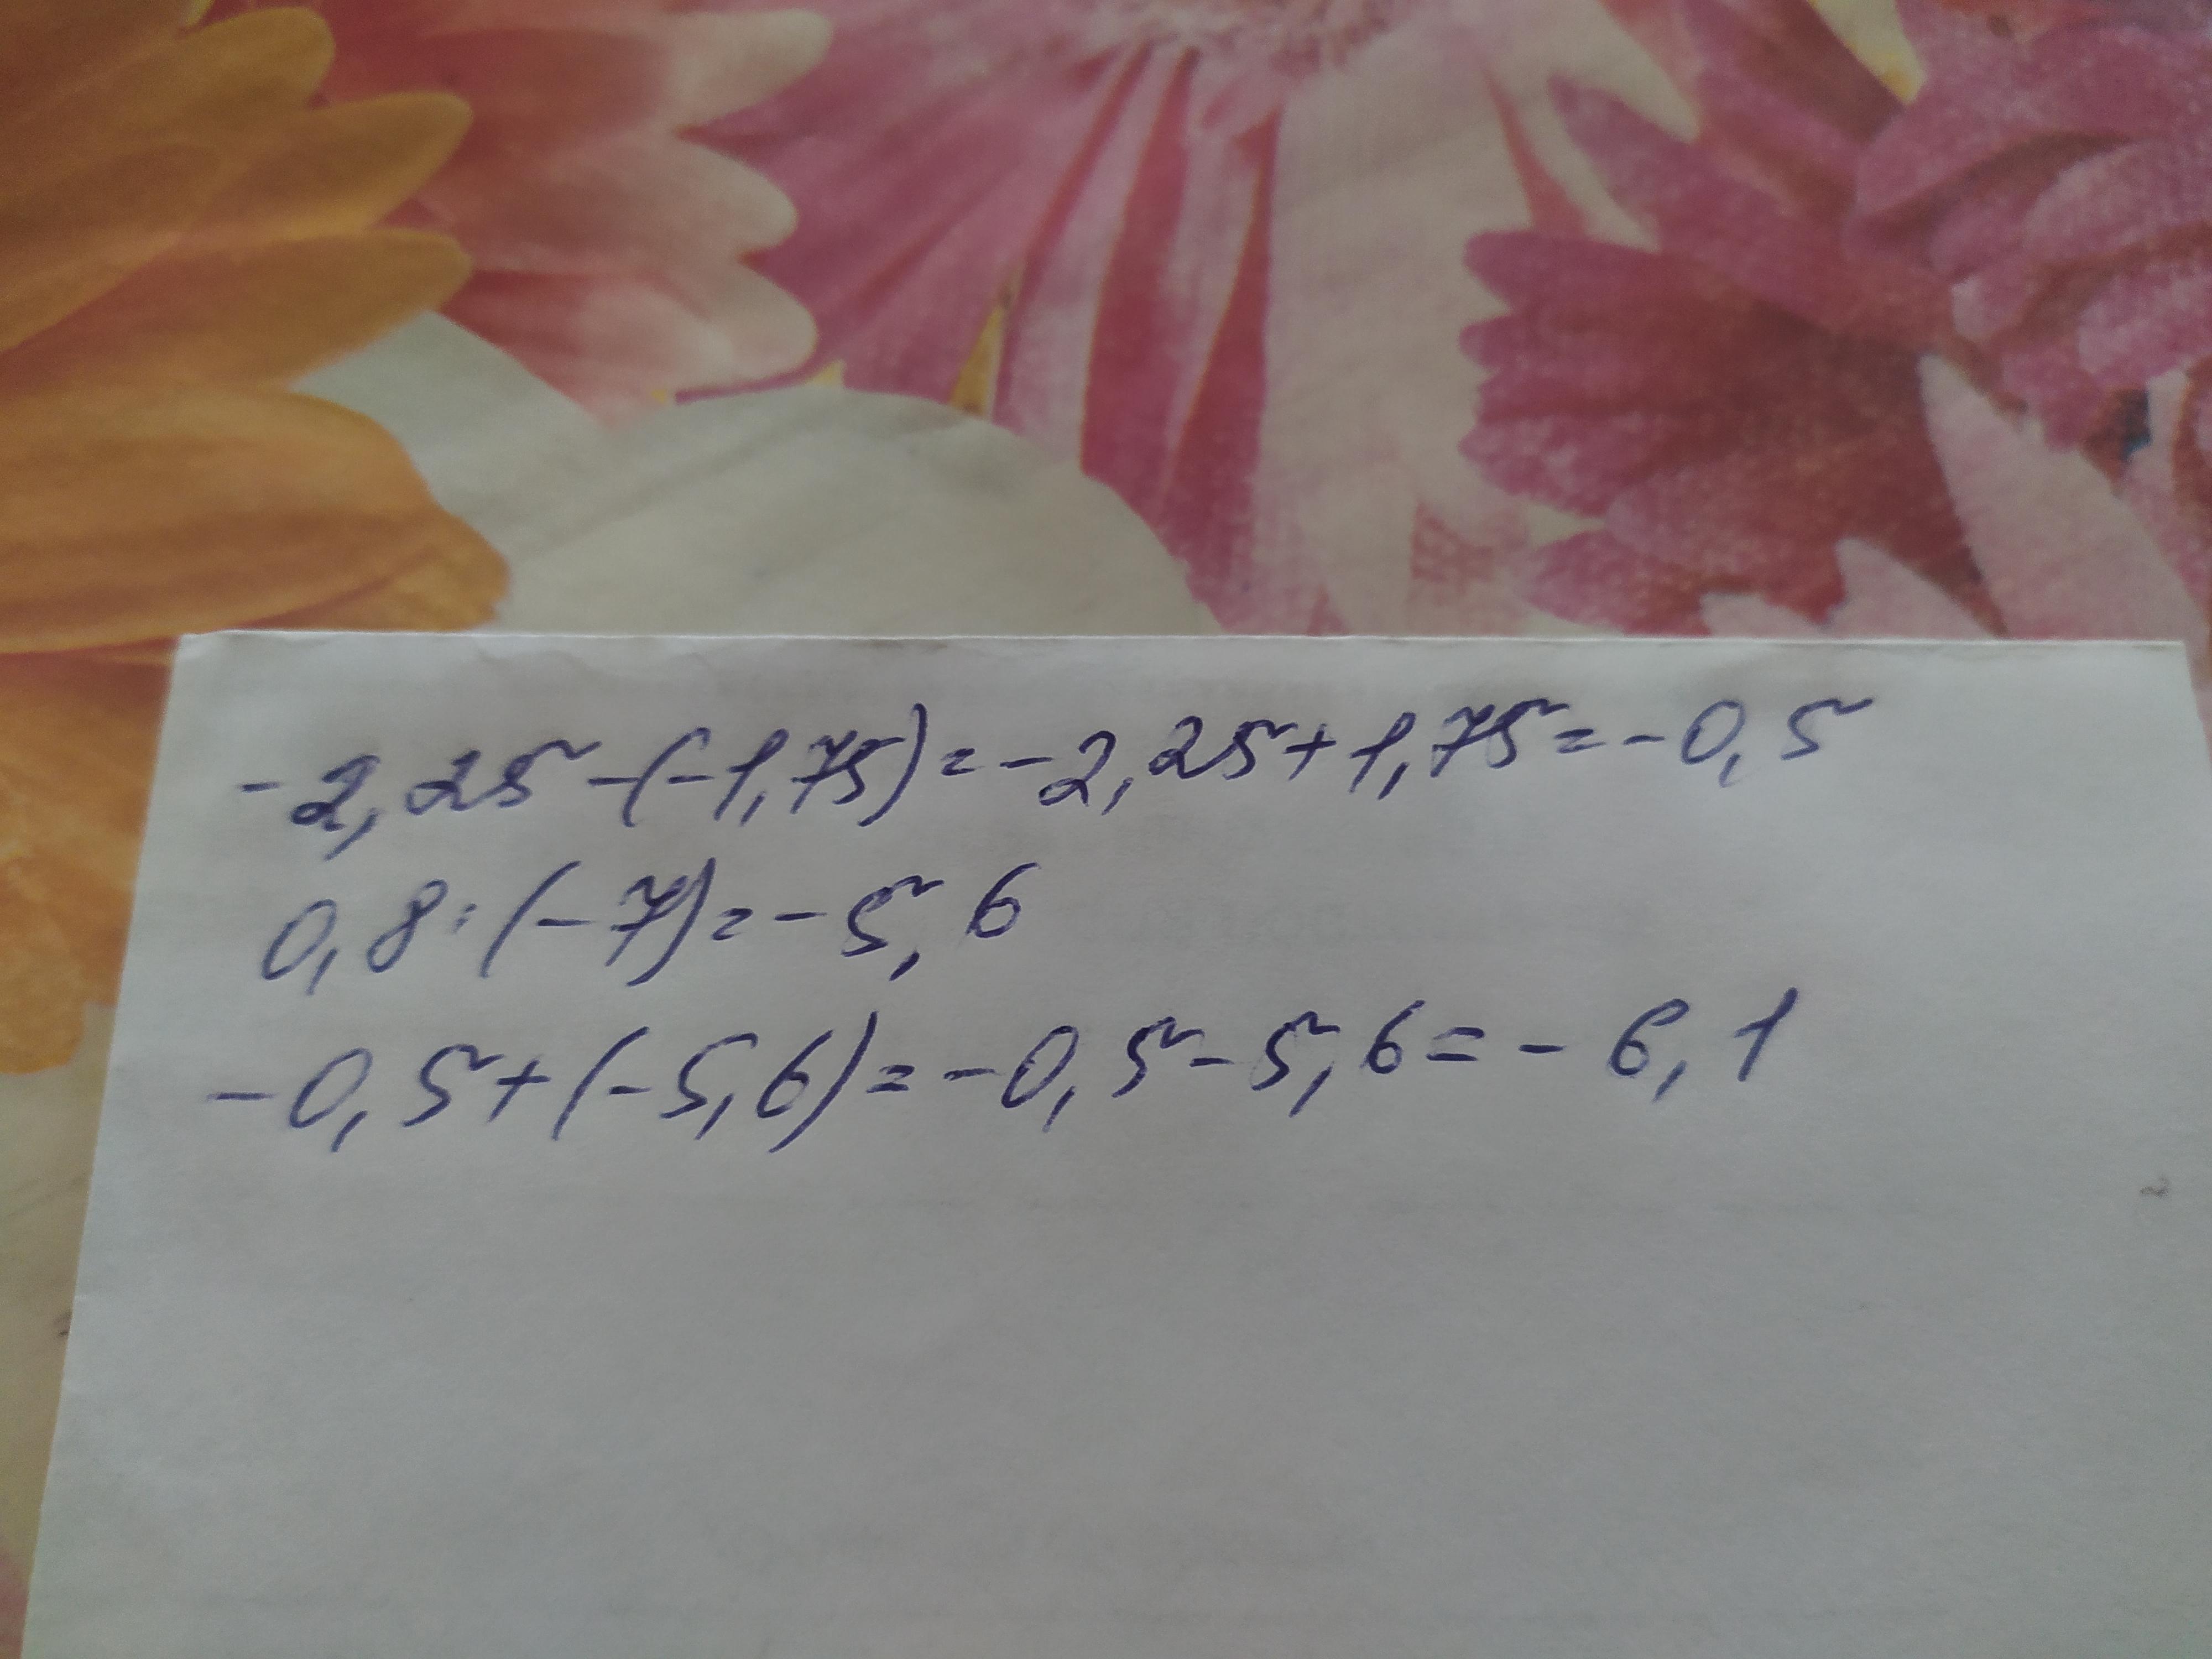 -2,25-(-1,75)=-2,25+1,75=-0,5
0,8·(-7)=-5,6
-0,5+(-5,6)=-0,5-5,6=-6,1